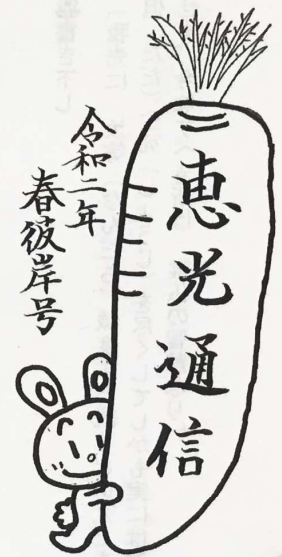 恵光通信
令和二年
春彼岸号